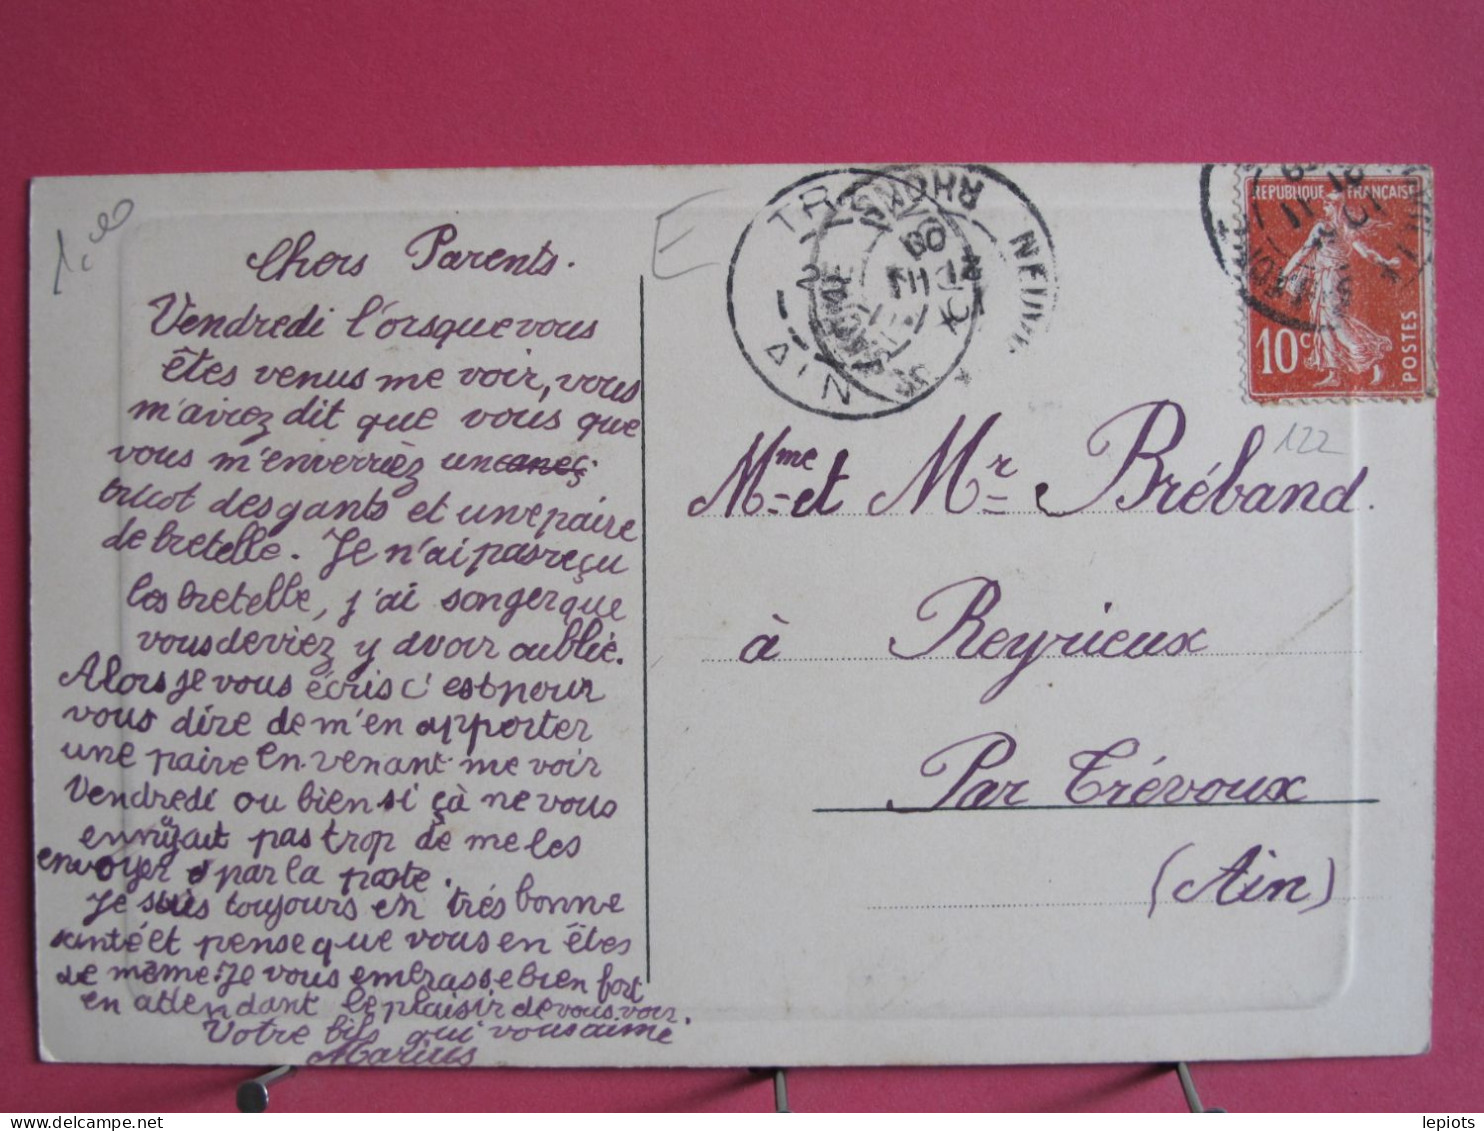 Chers Parents.
Vendredi l'orsque vous
êtes venus me voir, vous
m'aviez dit que vous que
vous m'enverriez un
tricot des gants et une paire
de bretelle. Je n'ai pas reçu
les bretelle, j'ai songer que
vous deviez y avoir oublié.
Alors je vous écris c'est pour
vous dire de m'en apporter
une paire en venant me voir
Vendredi ou bien si çà ne vous
ennuyait pas trop de me les
envoyer par la poste.
Je suis toujours en très bonne
santé et pense que vous en êtes
de même. Je vous embrasse bien fort
en attendant le plaisir de vous voir.
Votre fils qui vous aime
Marius
E
TRÉVOUX
AIN
RHONE
REPUBLIQUE FRANÇAISE
10c
POSTES
122
Mme et Mr Bréband.
à Reyrieux
Par Trévoux
(Ain)
lepiots